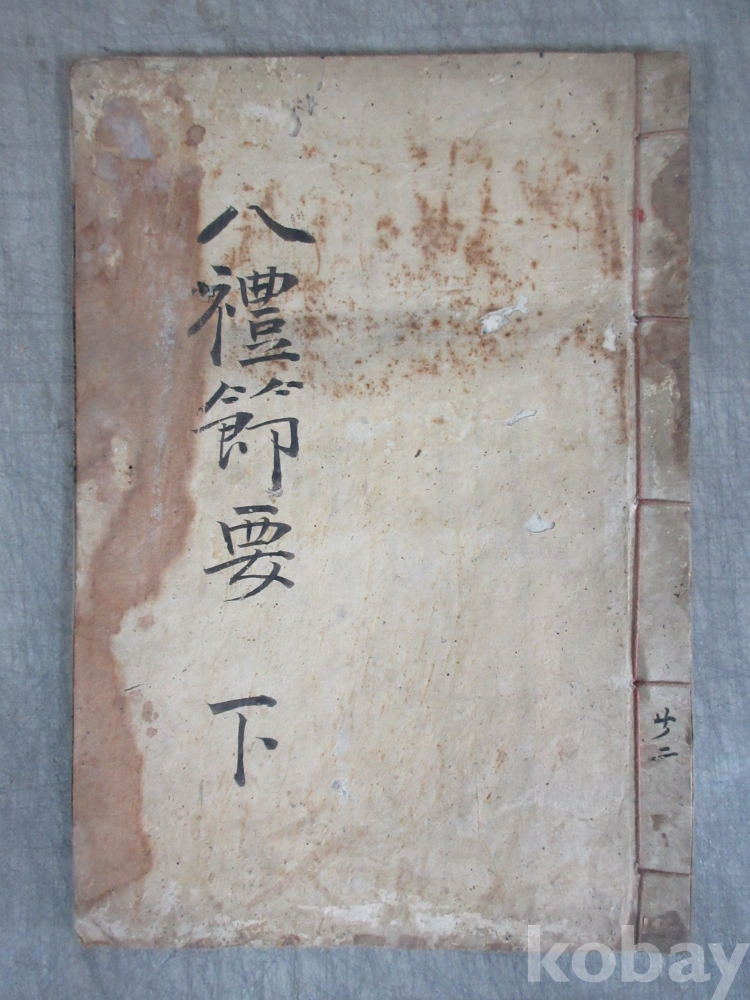 八禮節要 下
共二
kobay